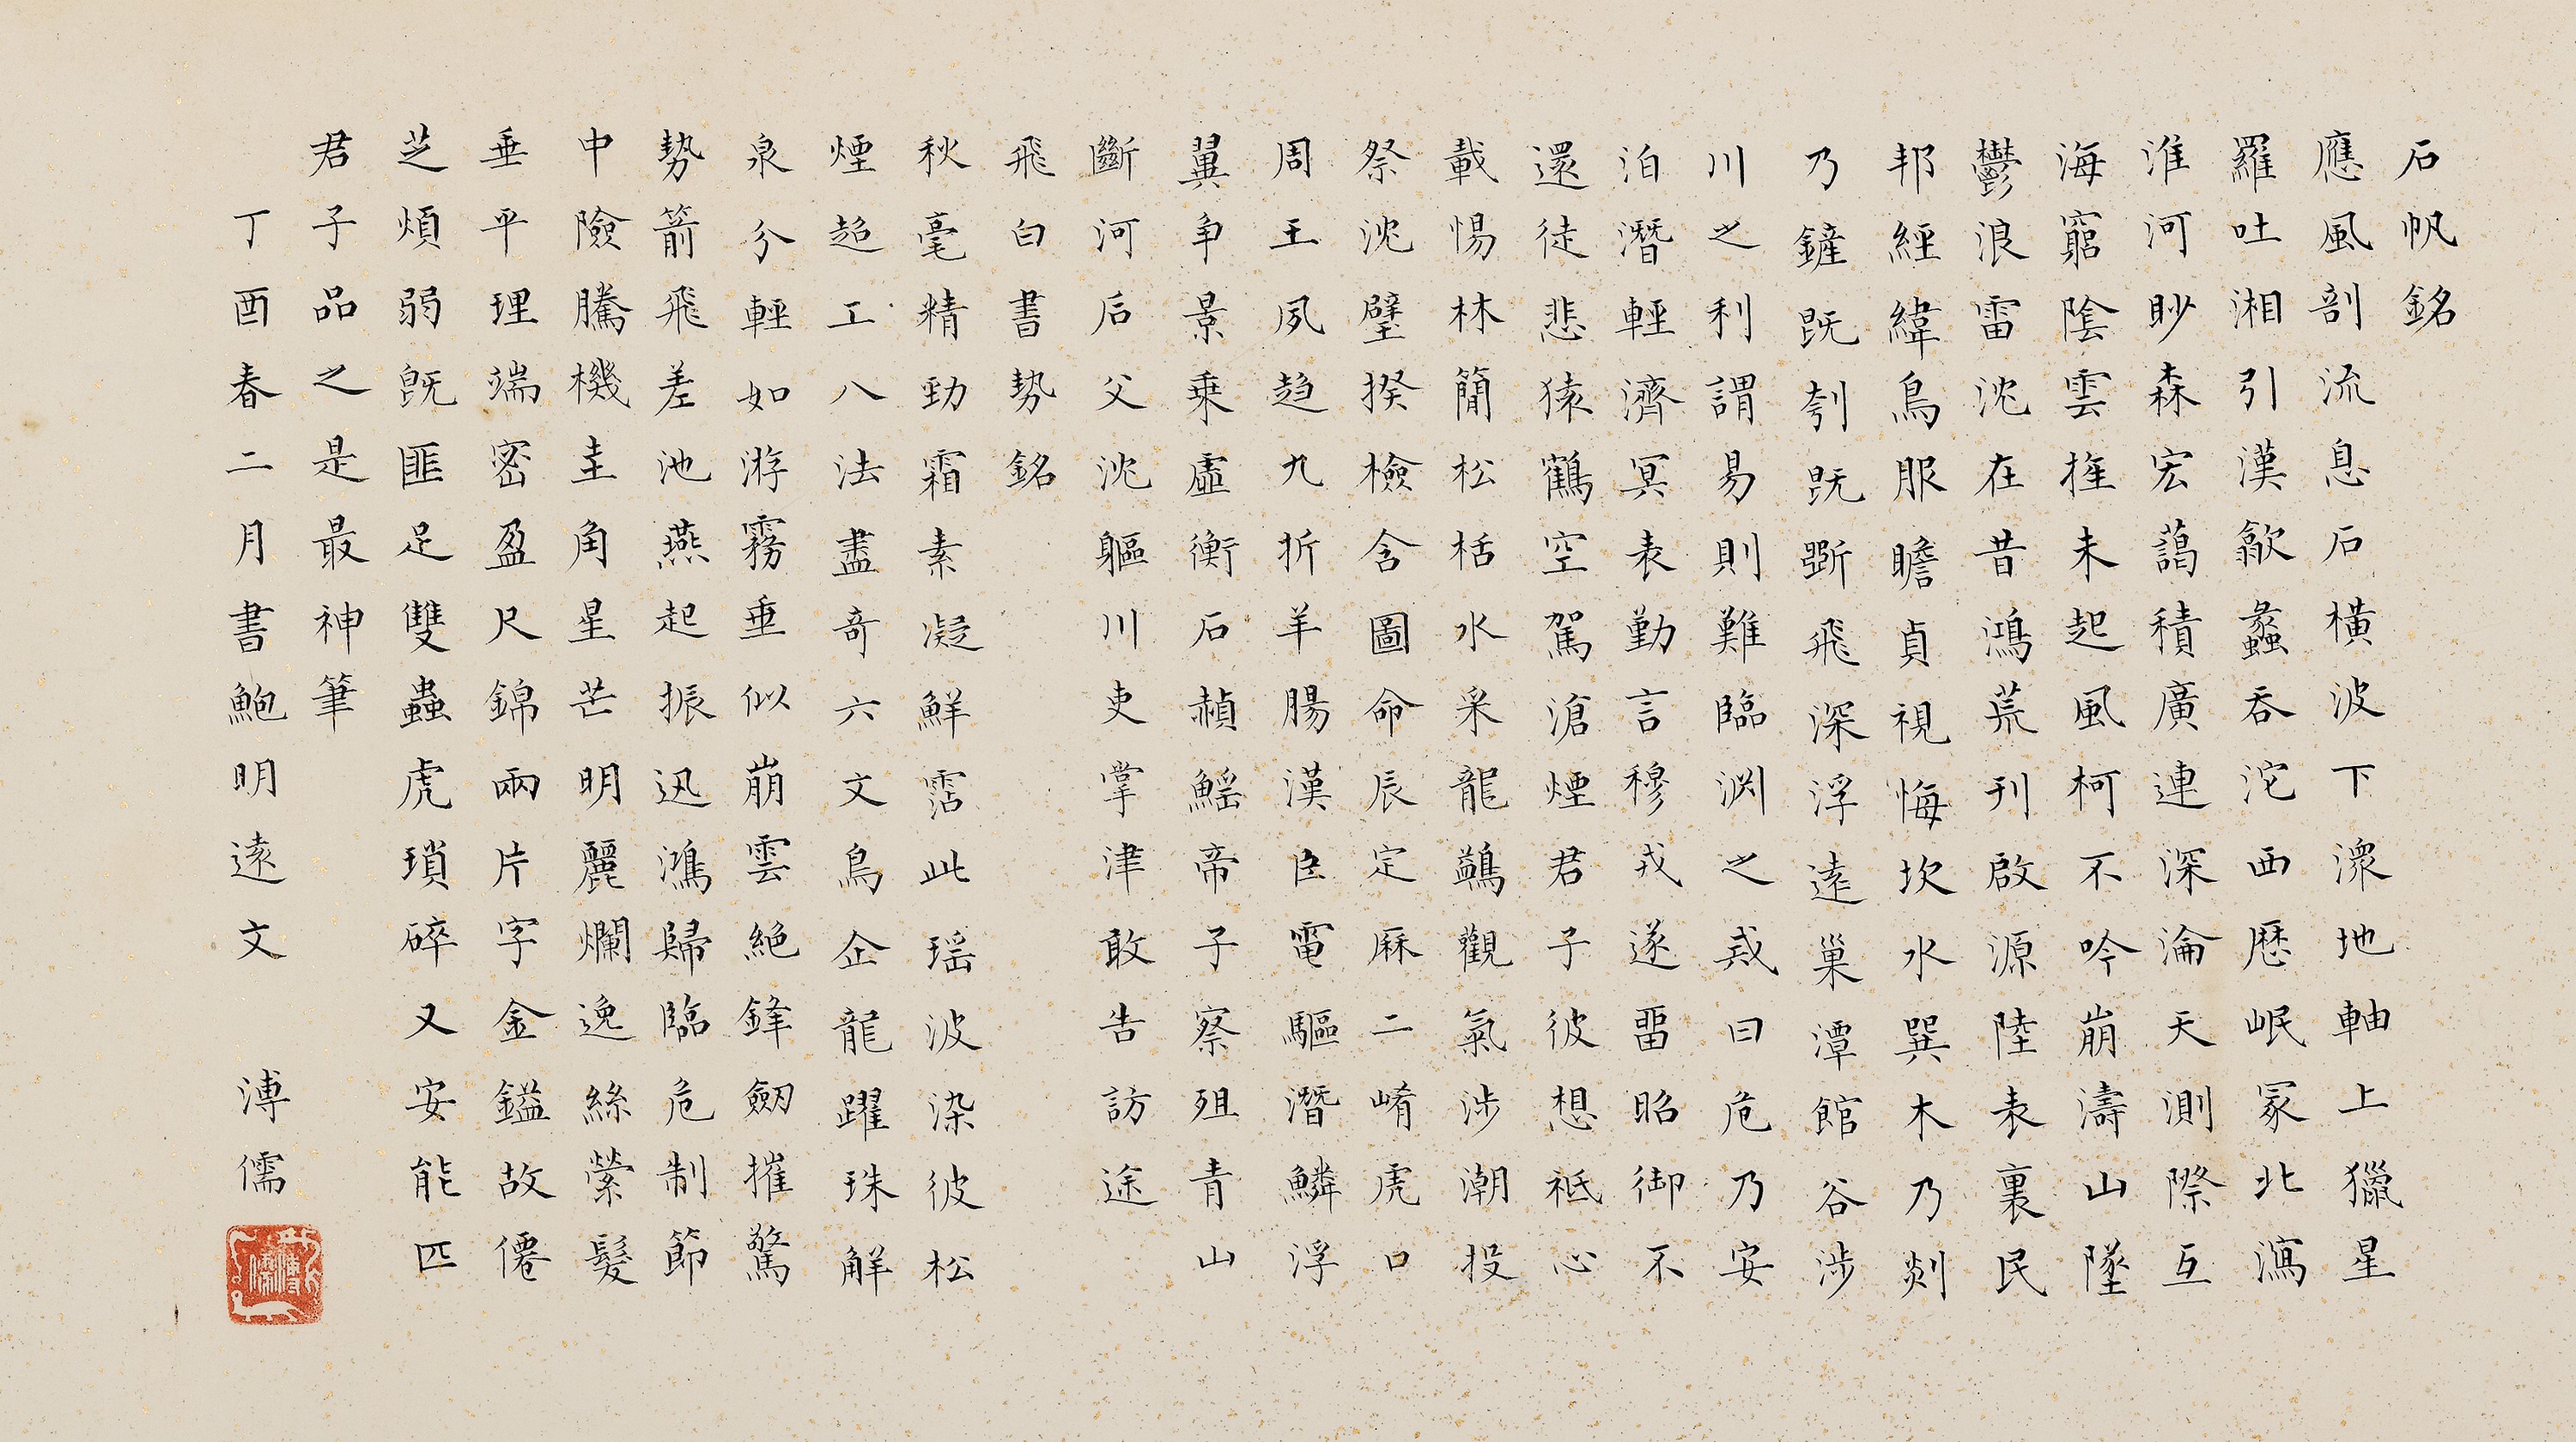 石帆銘
應風剖流息石橫波下潨地軸上獵星
羅吐湘引漢歙蠡吞沱西歷岷冢北瀉
淮河眇森宏藹積廣連深淪天測際亙
海窮陰雲旌未起風柯不吟崩濤山墜
鬱浪雷沈在昔鴻荒刊啟源陸表裏民
邦經緯鳥服瞻貞視悔坎水巽木乃剡
乃鏟既刳既斲飛深浮遠巢潭館谷涉
川之利謂易則難臨淵之戒曰危乃安
泊潛輕濟冥表勤言穆戎遂畱昭御不
還徒悲猿鶴空駕滄煙君子彼想祗心
載惕林簡松栝水采龍鷁觀氣涉潮投
祭沈璧揆檢含圖命辰定厤二崤虎口
周王夙趨九折羊腸漢臣電驅潛鱗浮
翼爭景乘虛衡石赬鰩帝子察殂青山
斷河后父沈軀川吏掌津敢告訪途
飛白書勢銘
秋毫精勁霜素凝鮮霑此瑶波染彼松
煙超工八法盡奇六文鳥企龍躍珠解
泉分輕如游霧垂似崩雲絕鋒劒摧驚
勢箭飛差池燕起振迅鴻歸臨危制節
中險騰機圭角星芒明麗爛逸絲縈髮
垂平理端密盈尺錦兩片字金鎰故僊
芝煩弱既匪足雙蟲虎瑣碎又安能匹
君子品之是最神筆
丁酉春二月書鮑明遠文 溥儒